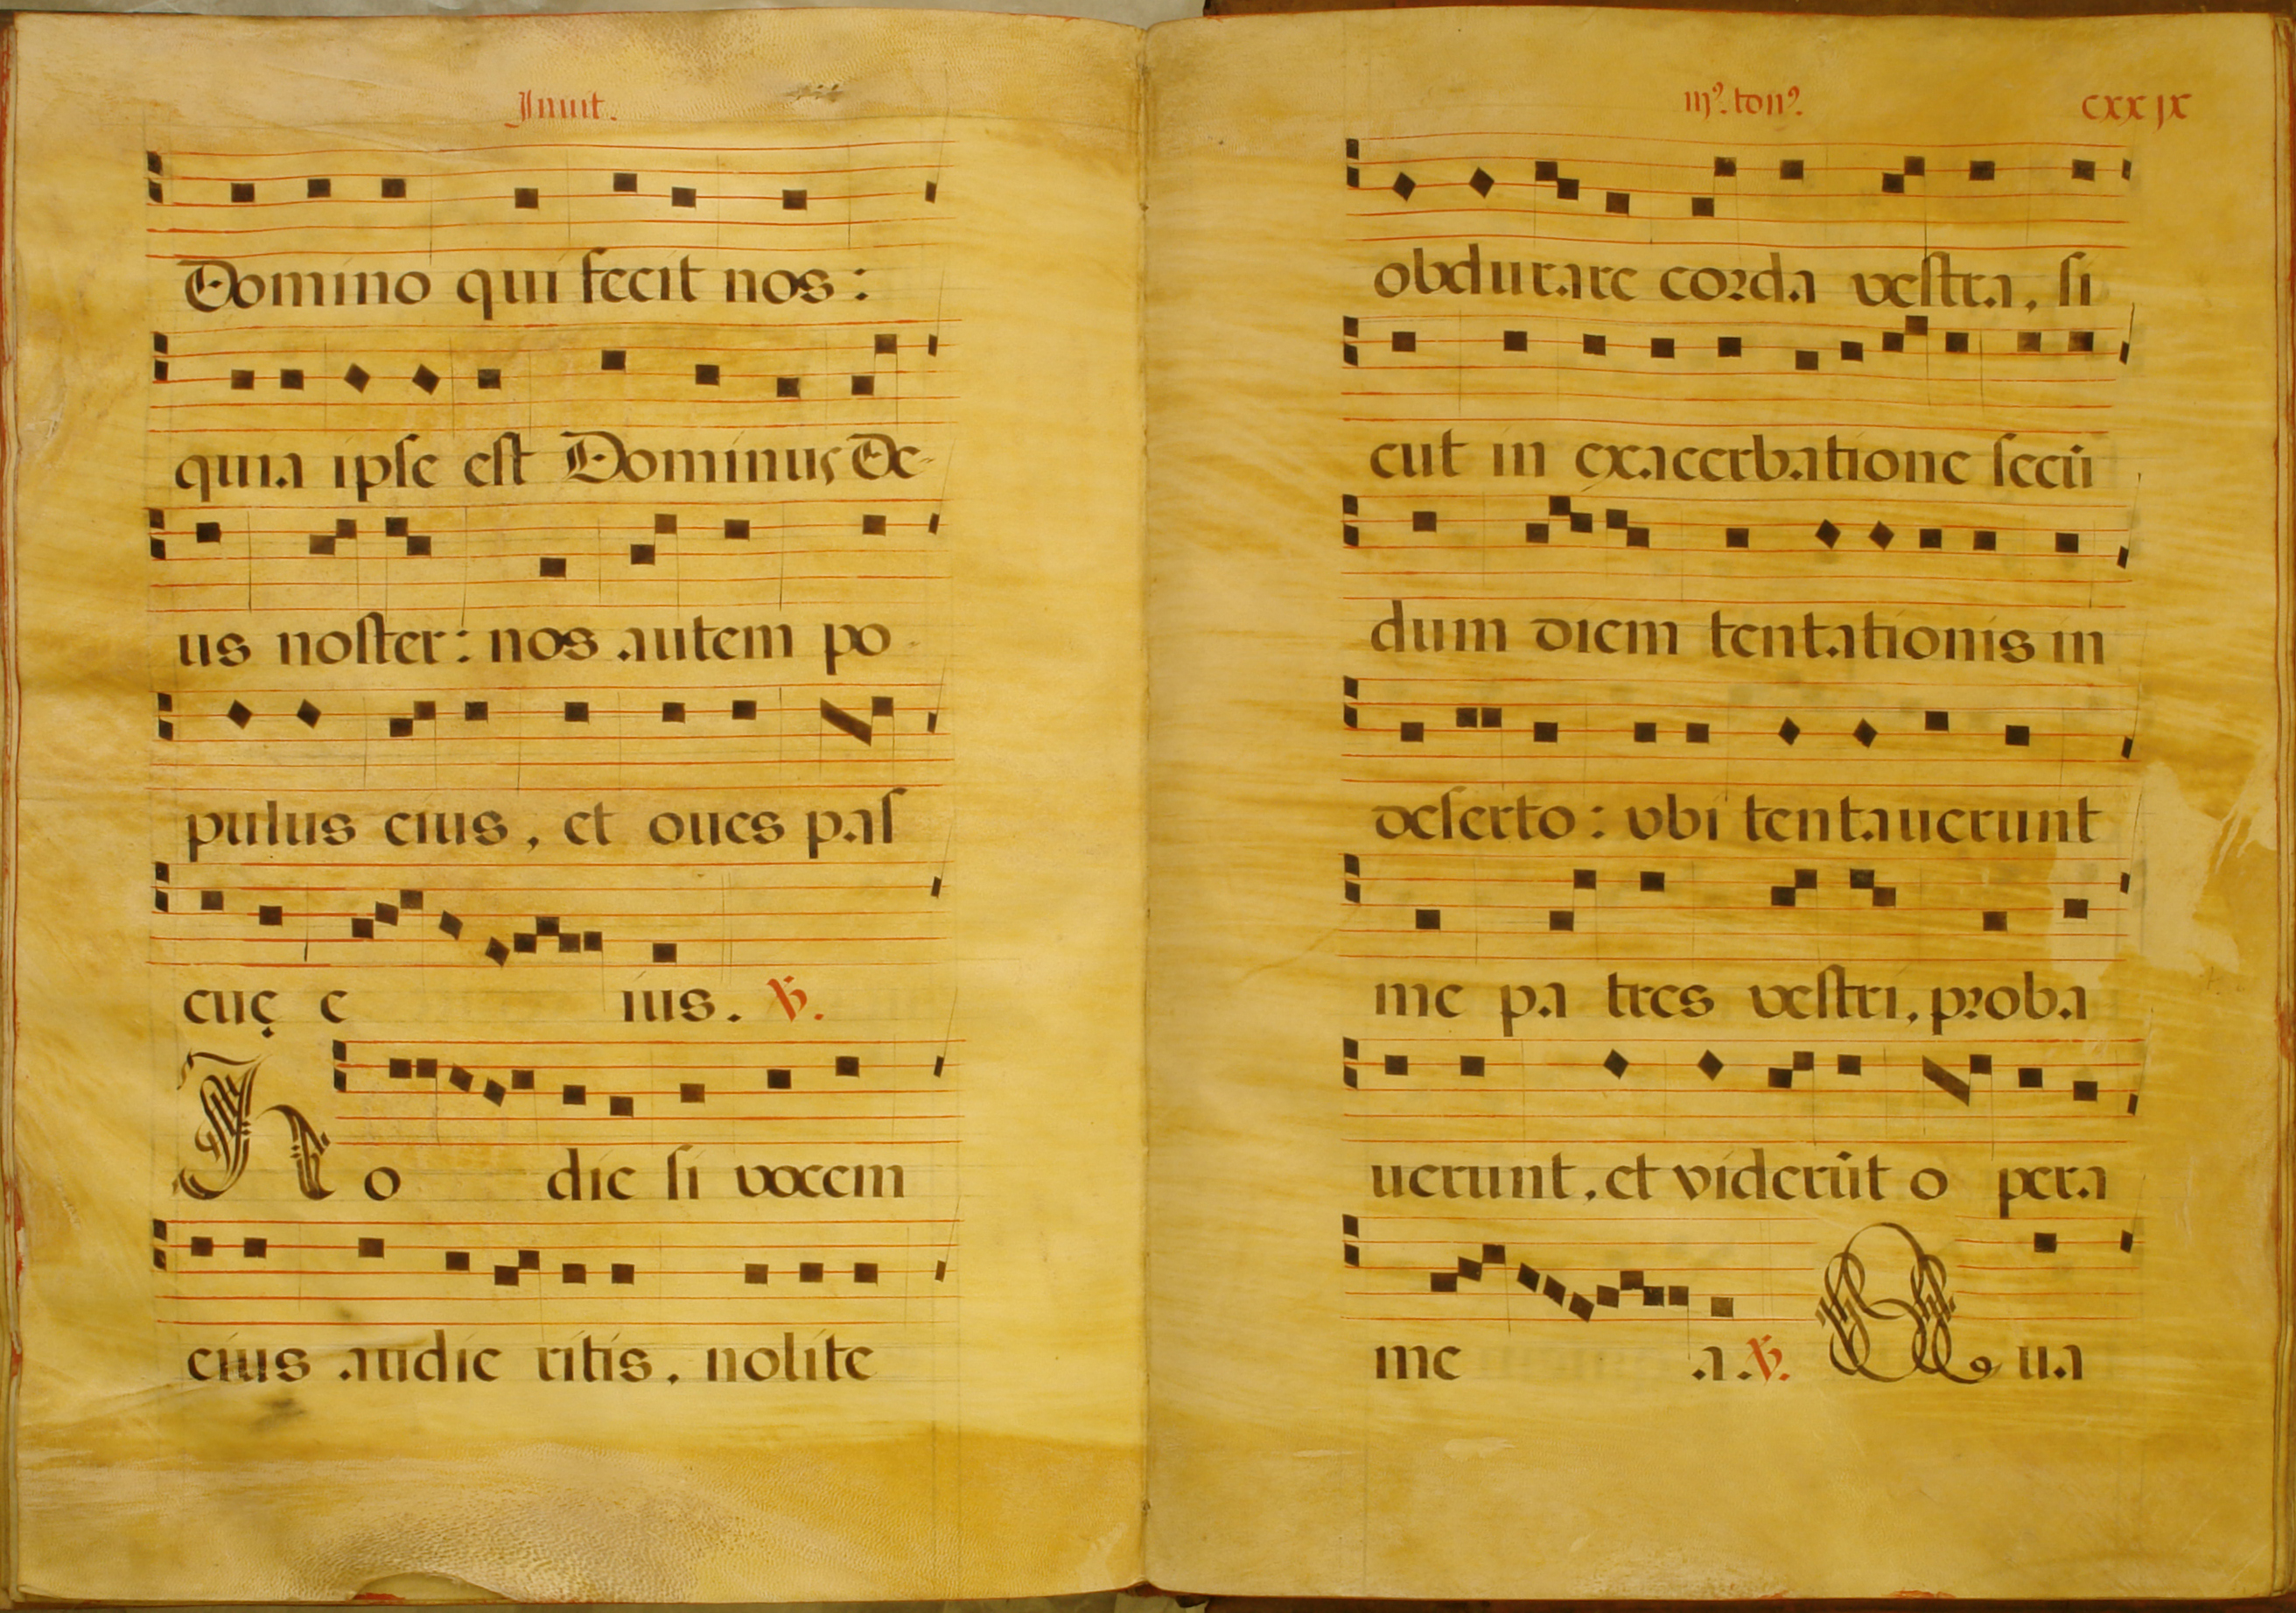 Inuit.
Domino qui fecit nos:
quia ipſe eſt Dominus De-
us noſter: nos autem po-
pulus eius, et oues paſ
cuę e ius. ℣.
Ho die ſi vocem
eius audie ritis, nolite
iijº. tonº. cxxix
obdurare corda veſtra, ſi
cut in exacerbatione ſecū
dum diem tentationis in
deſerto: vbi tentauerunt
me pa tres veſtri, proba
uerunt, et viderūt o pera
me a. ℣. Qua